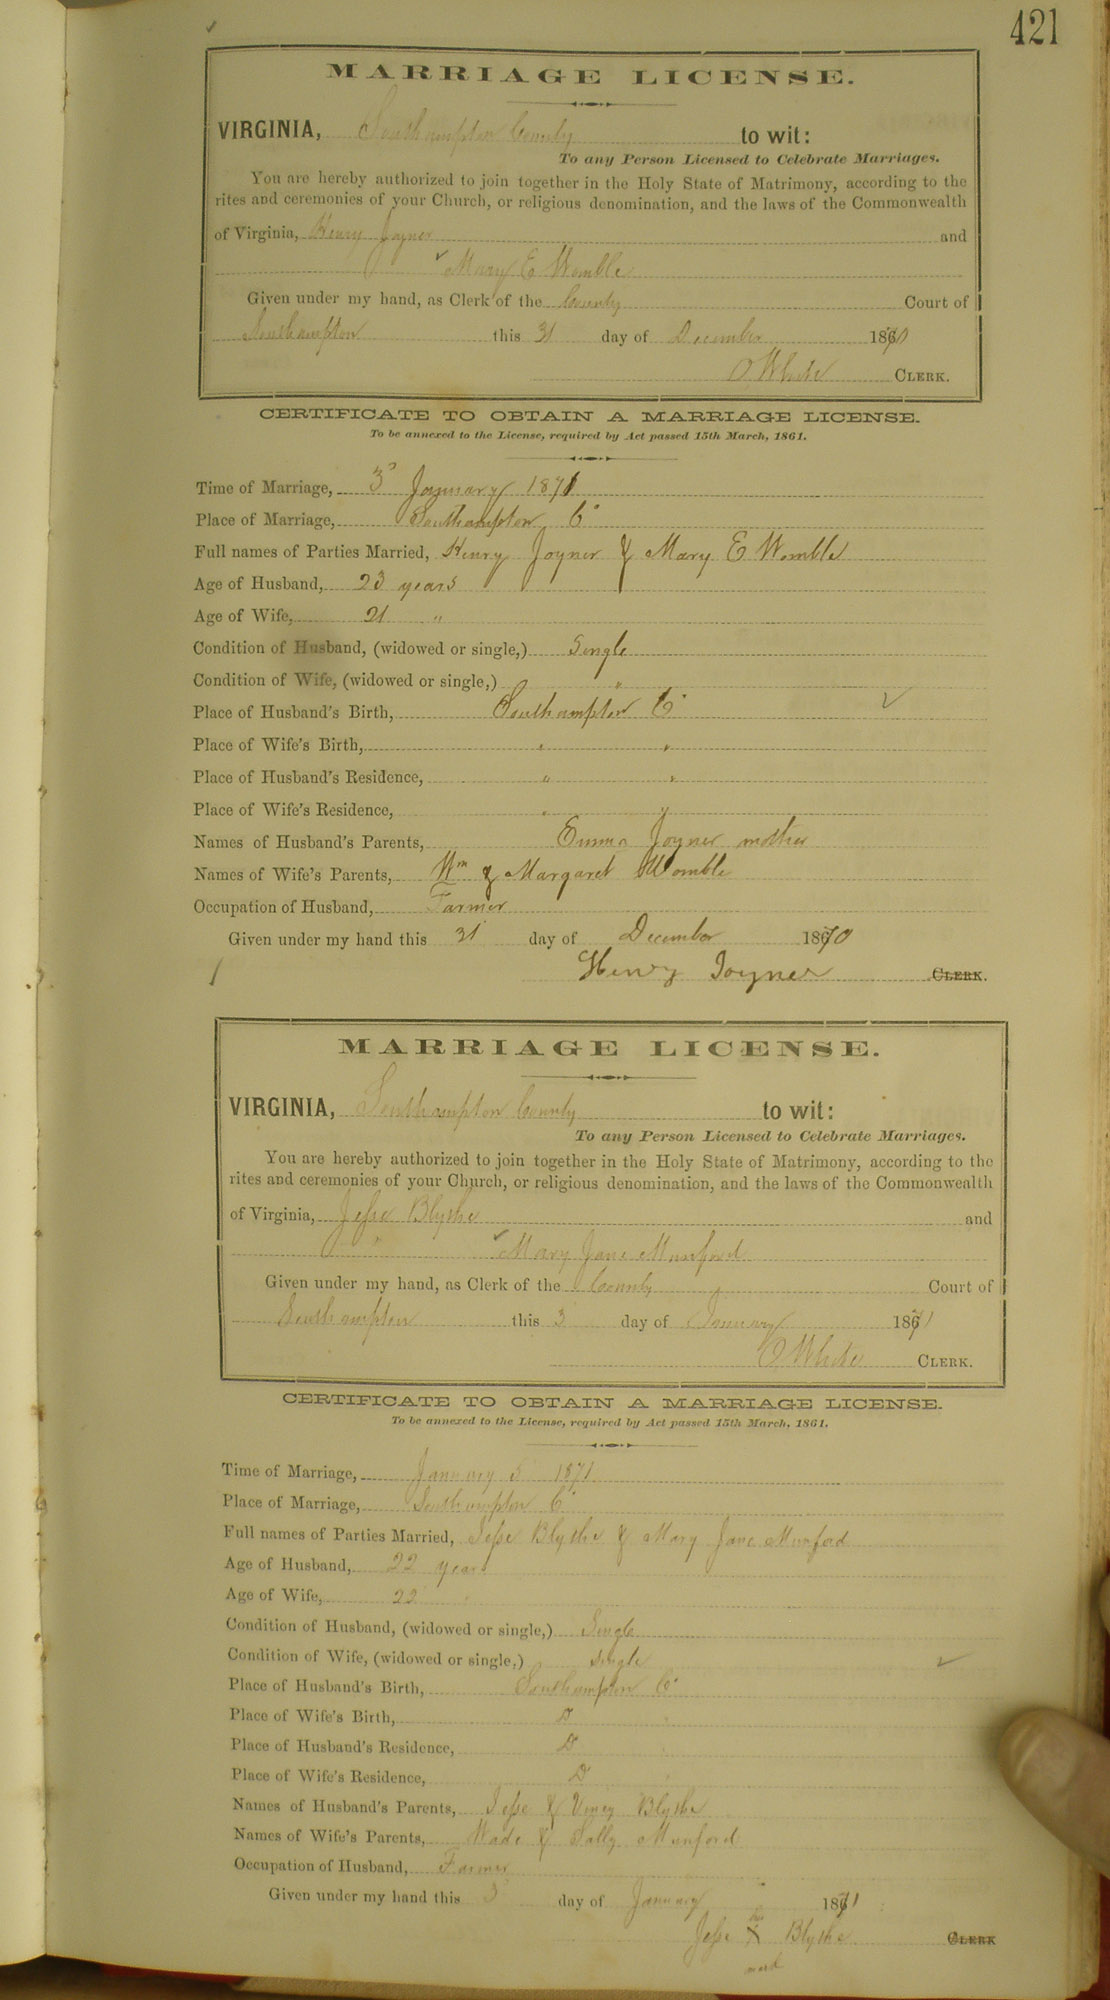 421
MARRIAGE LICENSE.
VIRGINIA, Southampton County to wit:
To any Person Licensed to Celebrate Marriages.
You are hereby authorized to join together in the Holy State of Matrimony, according to the
rites and ceremonies of your Church, or religious denomination, and the laws of the Commonwealth
of Virginia, Henry Joyner and
Mary E Womble
Given under my hand, as Clerk of the County Court of
Southampton this 31 day of December 1870
O White CLERK.
CERTIFICATE TO OBTAIN A MARRIAGE LICENSE.
To be annexed to the License, required by Act passed 15th March, 1861.
Time of Marriage, 3d January 1871
Place of Marriage, Southampton Co
Full names of Parties Married, Henry Joyner & Mary E Womble
Age of Husband, 23 years
Age of Wife, 21 "
Condition of Husband, (widowed or single,) Single
Condition of Wife, (widowed or single,) "
Place of Husband's Birth, Southampton Co
Place of Wife's Birth, " "
Place of Husband's Residence, " "
Place of Wife's Residence, " "
Names of Husband's Parents, Emma Joyner mother
Names of Wife's Parents, Wm & Margaret Womble
Occupation of Husband, Farmer
Given under my hand this 31 day of December 1870
Henry Joyner CLERK.
MARRIAGE LICENSE.
VIRGINIA, Southampton County to wit:
To any Person Licensed to Celebrate Marriages.
You are hereby authorized to join together in the Holy State of Matrimony, according to the
rites and ceremonies of your Church, or religious denomination, and the laws of the Commonwealth
of Virginia, Jesse Blythe and
Mary Jane Munford
Given under my hand, as Clerk of the County Court of
Southampton this 3 day of January 1871
O White CLERK.
CERTIFICATE TO OBTAIN A MARRIAGE LICENSE.
To be annexed to the License, required by Act passed 15th March, 1861.
Time of Marriage, January 5 1871
Place of Marriage, Southampton Co
Full names of Parties Married, Jesse Blythe & Mary Jane Munford
Age of Husband, 22 years
Age of Wife, 22 "
Condition of Husband, (widowed or single,) Single
Condition of Wife, (widowed or single,) single
Place of Husband's Birth, Southampton Co
Place of Wife's Birth, D
Place of Husband's Residence, D
Place of Wife's Residence, D
Names of Husband's Parents, Jesse & Viney Blythe
Names of Wife's Parents, Wade & Sally Munford
Occupation of Husband, Farmer
Given under my hand this 3d day of January 1871
his
Jesse X Blythe CLERK
mark